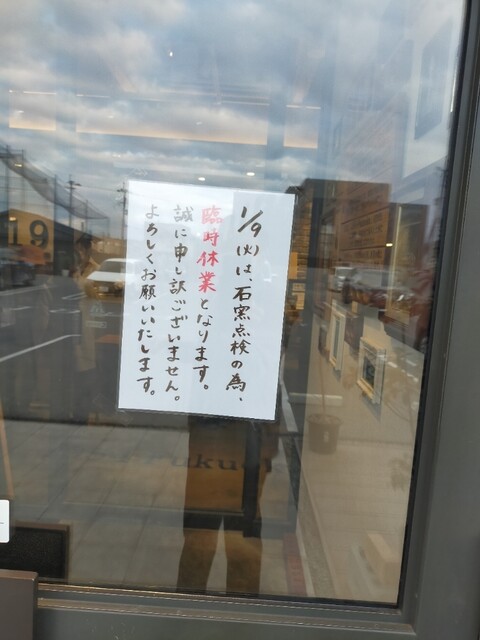 1/9(火)は、石窯点検の為、
臨時休業となります。
誠に申し訳ございません。
よろしくお願いいたします。
19